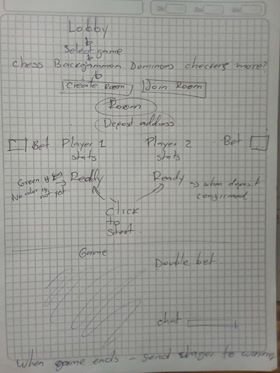 Lobby
Select game
chess Backgammon Dominos checkers more?
Create Room Join Room
Room
Deposit address
Bet Player 1 Player 2 Bet
stats stats
Green if Ready Ready → when deposit
No color if not yet confirmed
Click
to
start
Game
Double bet
chat
When game ends - send stager to winning